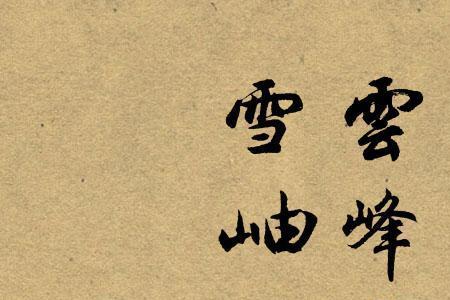 雲峰
雪岫